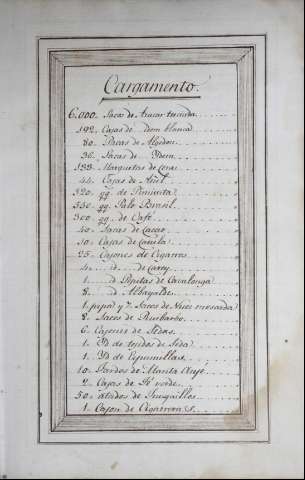 Cargamento.
6.000 Sacas de Azucar terciada
192 Cajas de Idem blanca
80 Pacas de Algodon
36 Sacas de Idem
Marquetas de cera
44 Cajas de Añil
320 qq. de Pimienta
550 qq. Palo Brasil
300 qq. de Café
40 Sacas de Cacao
10 Cajas de Canela
25 Cajones de Cigarros
4 id. de Carey
1 id. Pepitas de Cavalonga
8 id. Albayalde
1 pipa y 7 Sacos de Nuez moscada
8 Sacos de Ruibarbo
6 Cajones de Sedas
1 Yd. de tejidos de Seda
1 Yd. de Espumillas
10 Fardos de Manta
2 Cajas de Té verde
50 atados de Junquillos
1 Cajon de